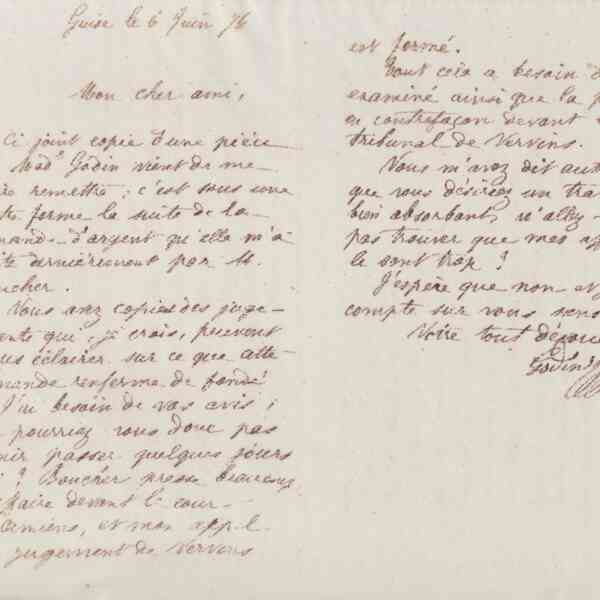 Guise le 6 Juin 76
Mon cher ami,
Ci joint copie d'une pièce
Mad. Godin vient de me
remettre ; c'est sous une
forme la suite de la
d'argent qu'elle m'a
dernièrement par M.
ucher.
Vous avez copies des juge-
qui, je crois, peuvent
us éclairer sur ce que
mande renferme de fondé
J'ai besoin de vos avis ;
pourriez vous donc pas
nir passer quelques jours
i ? Boucher presse beaucoup
ffaire devant la cour
Amiens, et mon app-l
jugement de Vervins
est formé.
Tout cela a besoin d
examiné ainsi que la p
en contrefaçon devant
tribunal de Vervins.
Vous m'avez dit aut
que vous désiriez un tra
bien absorbant, n'allez-
pas trouver que mes aff
le sont trop ?
J'espère que non et j
compte sur vous sens
Votre tout dévoué
Godin